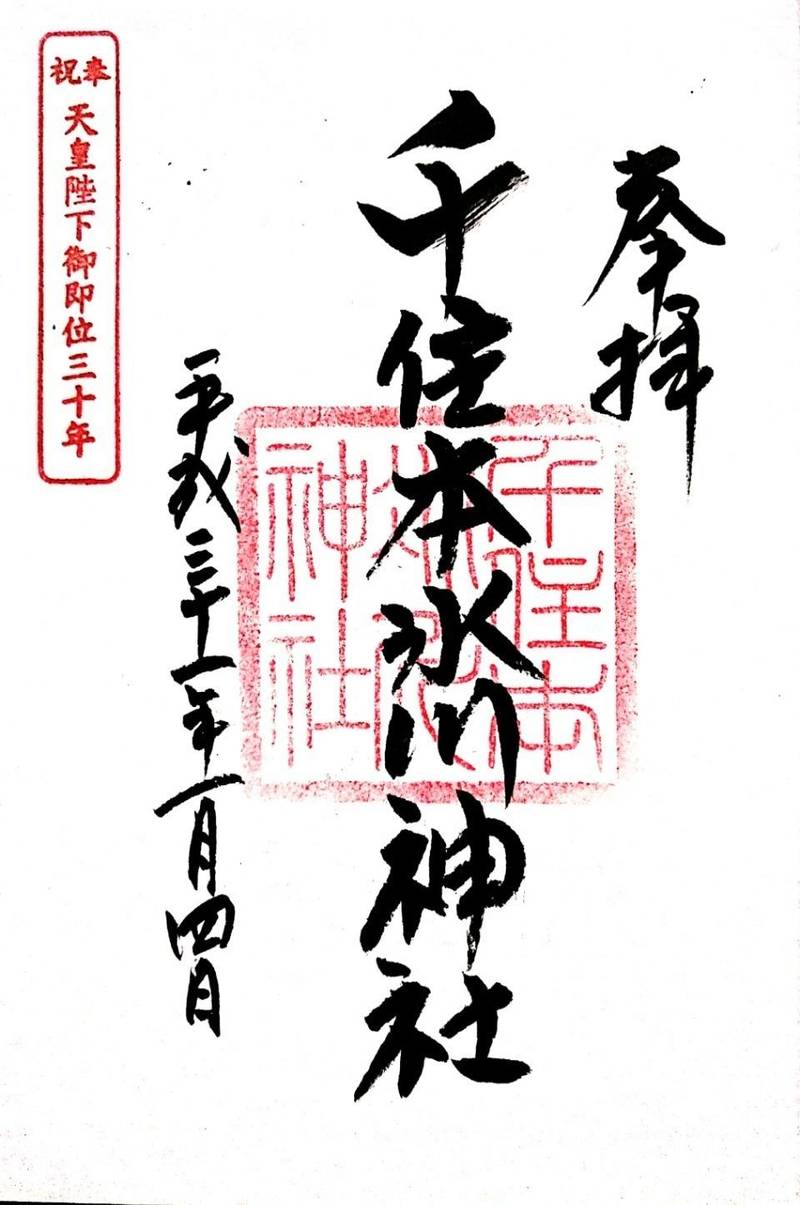 奉拝
千住本氷川神社
千住本
氷川
神社
平成三十一年一月四日
奉祝 天皇陛下御即位三十年